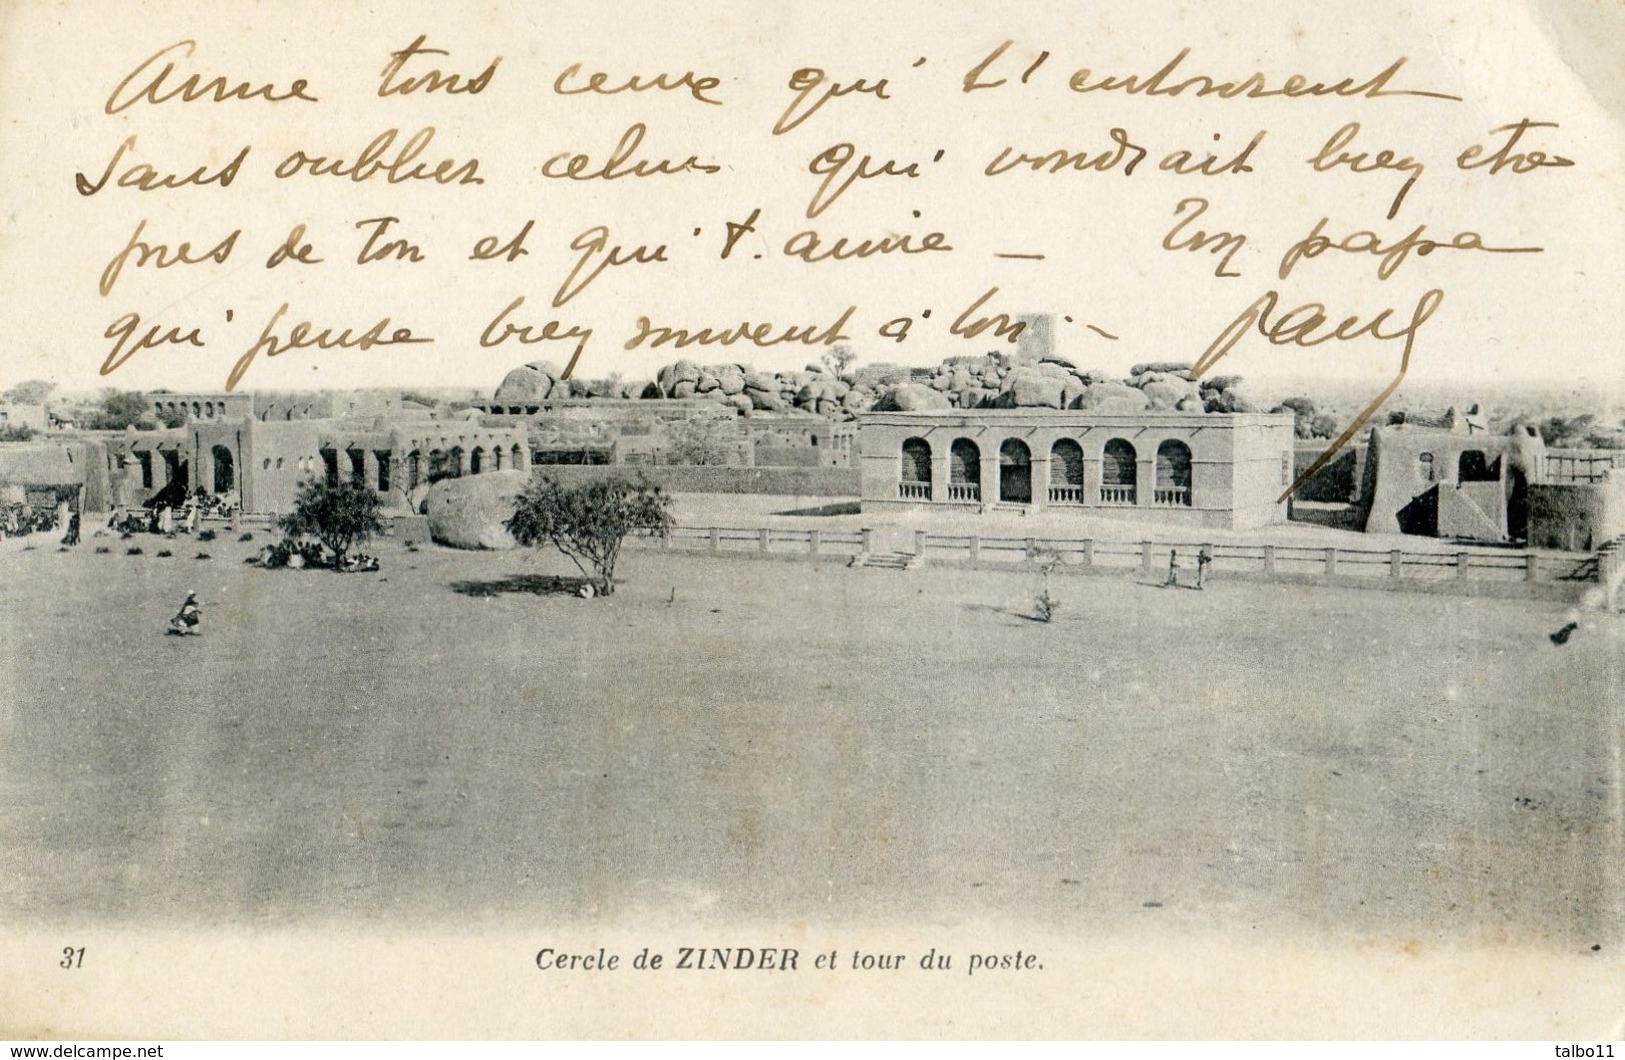 Aime tous ceux qui t'entourent
sans oublier celui qui voudrait bien etre
pres de Toi et qui t'aime – Ton papa
qui pense bien souvent à toi. – Paul
31 Cercle de ZINDER et tour du poste.
www.delcampe.net talbo11